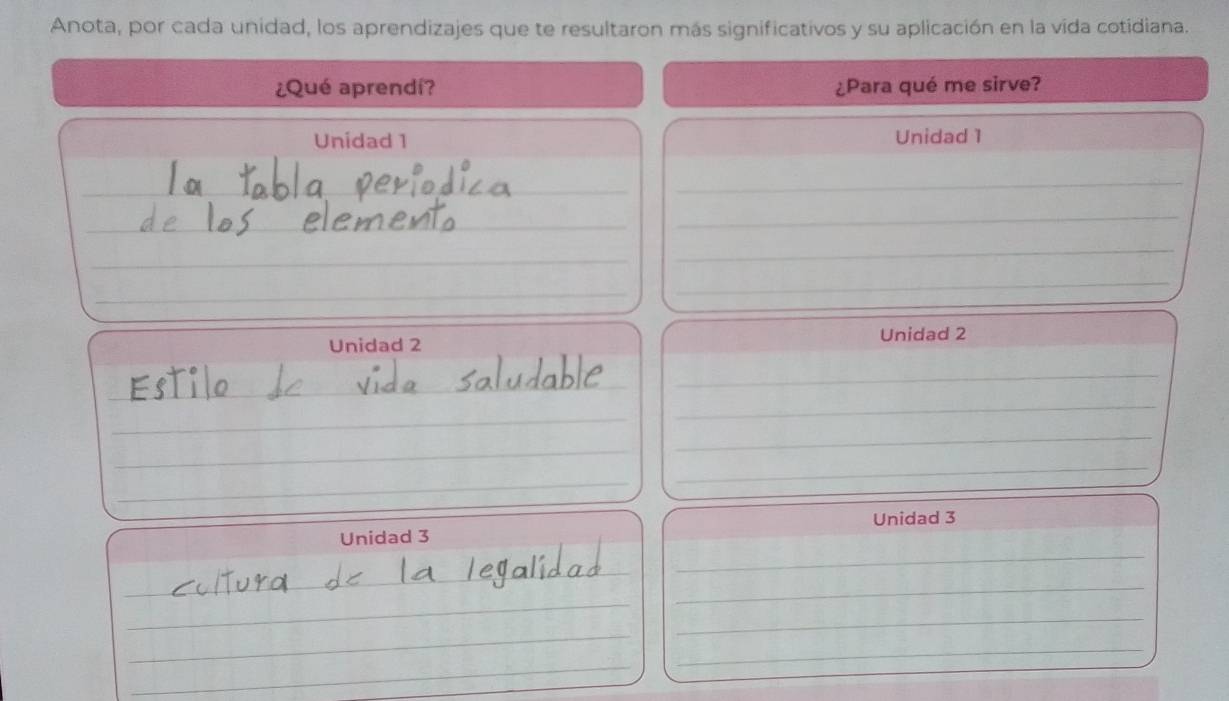 Anota, por cada unidad, los aprendizajes que te resultaron más significativos y su aplicación en la vida cotidiana.
¿Qué aprendí?
¿Para qué me sirve?
Unidad 1
la tabla periodica
de los elemento
Unidad 1
Unidad 2
Estilo de vida saludable
Unidad 2
Unidad 3
cultura de la legalidad
Unidad 3